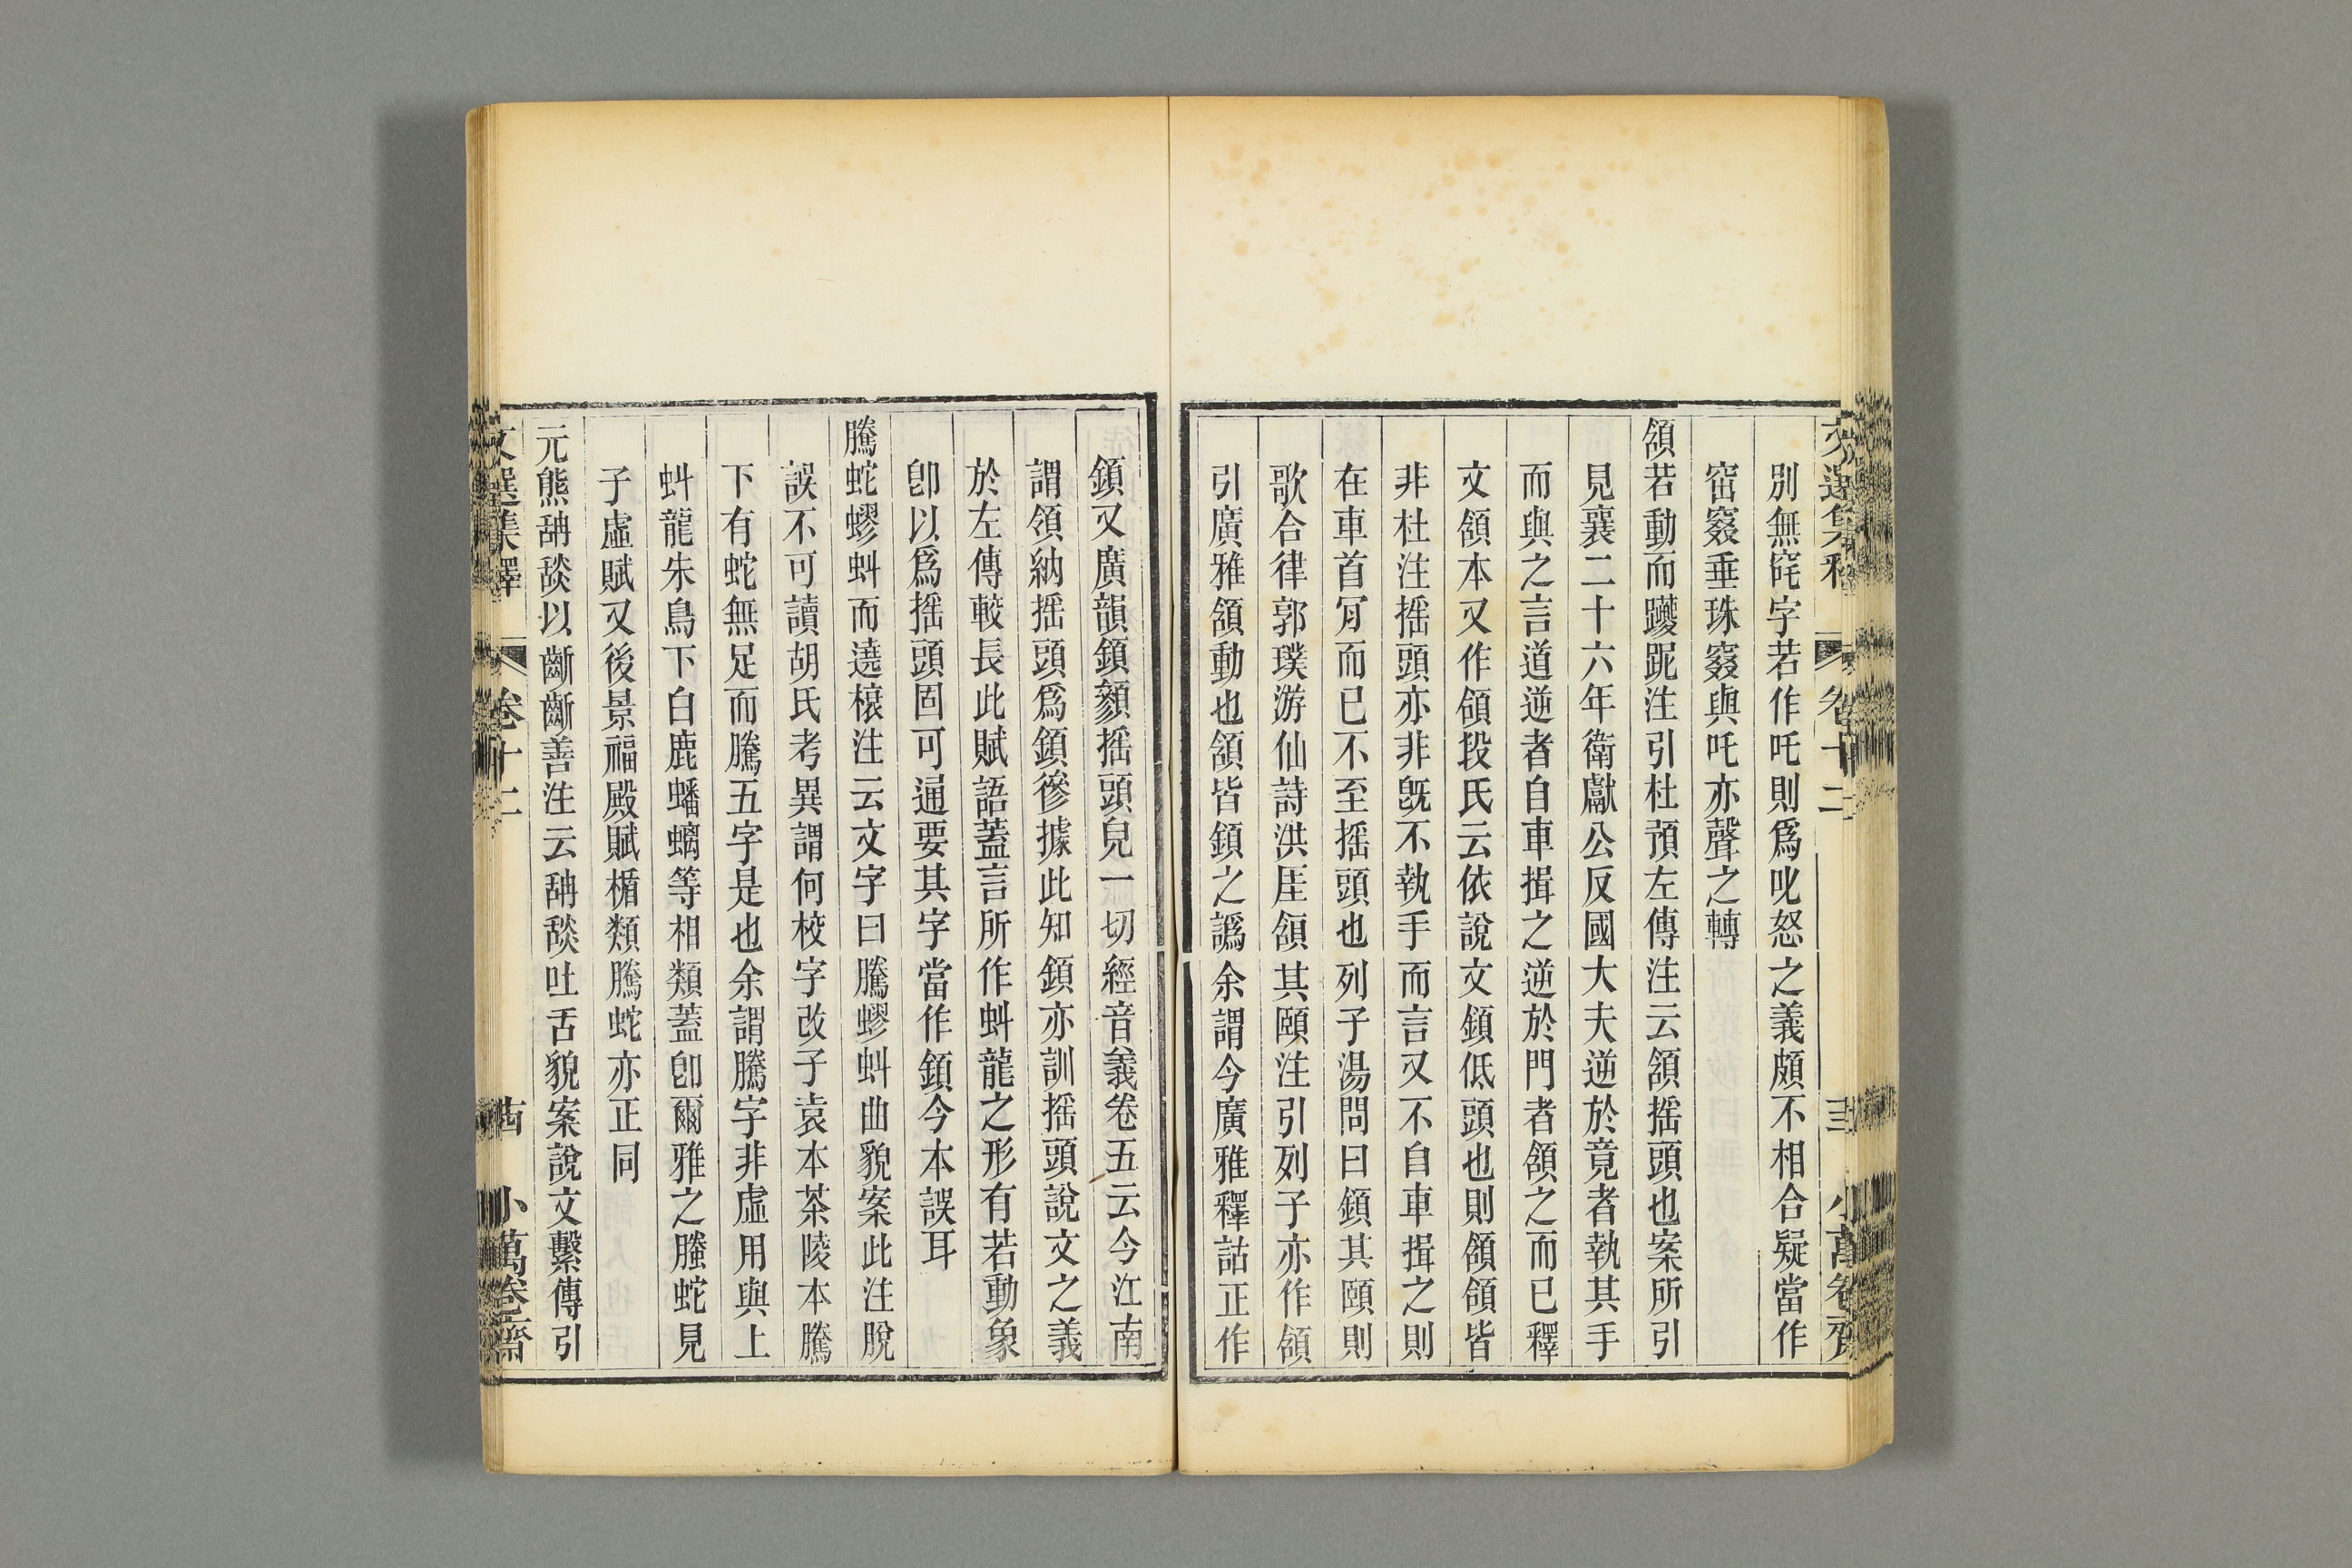 文選集釋 卷十二 小萬卷齋
別無窕字若作吒則爲叱怒之義頗不相合疑當作
窋窡垂珠窡與吒亦聲之轉
頷若動而躨跜注引杜預左傳注云頷搖頭也案所引
見襄二十六年衛獻公反國大夫逆於竟者執其手
而與之言道逆者自車揖之逆於門者頷之而已釋
文頷本又作頜段氏云依說文鎮低頭也則頷頜皆
非杜注搖頭亦非旣不執手而言又不自車揖之則
在車首肎而已不至搖頭也列子湯問曰鎮其頤則
歌合律郭璞游仙詩洪厓頷其頤注引列子亦作頷
引廣雅頷動也頷皆鎮之譌余謂今廣雅釋詁正作
鎮又廣韻鎮顡搖頭皃一切經音義卷五云今江南
謂領納搖頭爲鎮傪據此知鎮亦訓搖頭說文之義
於左傳較長此賦語蓋言所作虯龍之形有若動象
卽以爲搖頭固可通要其字當作鎮今本誤耳
騰蛇蟉虯而遶榱注云文字曰騰蟉虯曲貌案此注脫
誤不可讀胡氏考異謂何校字改子袁本茶陵本騰
下有蛇無足而騰五字是也余謂騰字非虛用與上
虯龍朱鳥下白鹿蟠螭等相類蓋卽爾雅之螣蛇見
子虛賦又後景福殿賦楯類騰蛇亦正同
元熊舑舕以齗齗善注云舑舕吐舌貌案說文繫傳引
文選集釋 卷十二 小萬卷齋